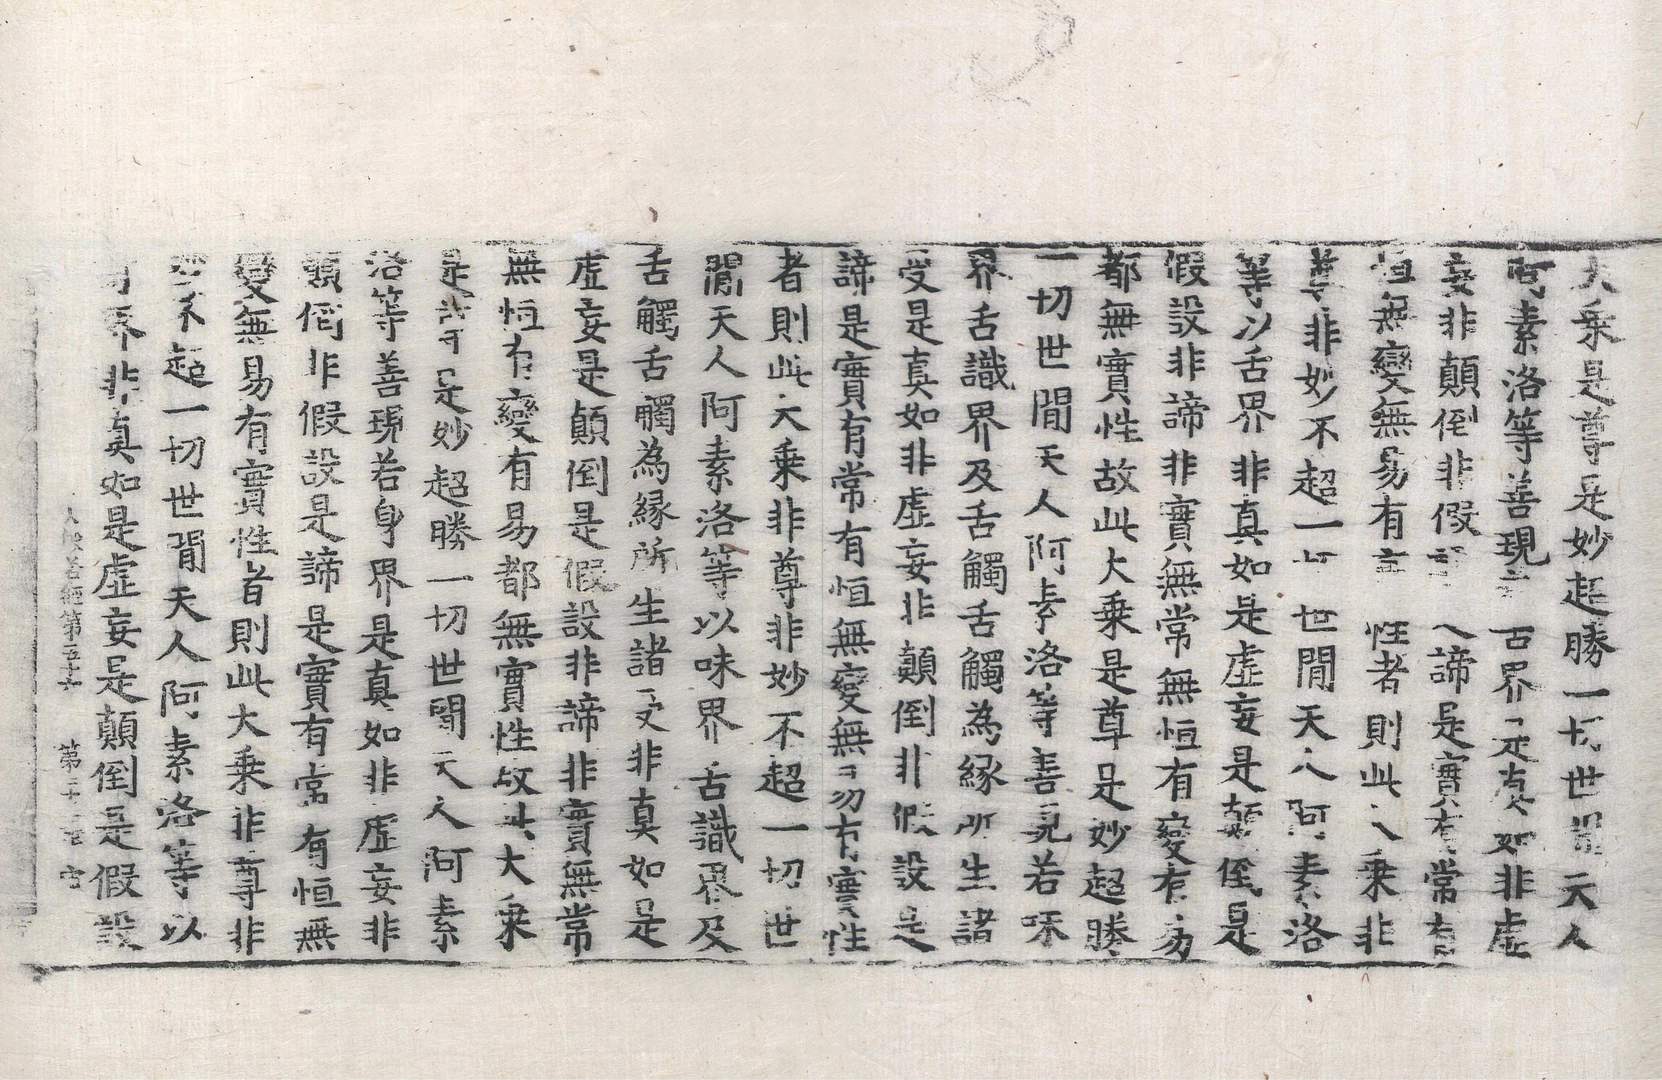 大乗是尊是妙超勝一切世間天人
阿素洛等善現 舌界是真如非虛
妄非顛倒非假 諦是實有常有
恒無變無易有 性者則此大乗非
尊非妙不超一切世間天人阿素洛
等以舌界非真如是虛妄是顛倒是
假設非諦非實無常無恒有變有易
都無實性故此大乗是尊是妙超勝
一切世間天人阿素洛等善現若味
界舌識界及舌觸舌觸為緣所生諸
受是真如非虛妄非顛倒非假設是
諦是實有常有恒無變無易有實性
者則此大乗非尊非妙不超一切世
間天人阿素洛等以味界舌識界及
舌觸舌觸為緣所生諸受非真如是
虛妄是顛倒是假設非諦非實無常
無恒有變有易都無實性故此大乗
是尊是妙超勝一切世間天人阿素
洛等善現若身界是真如非虛妄非
顛倒非假設是諦是實有常有恒無
變無易有實性者則此大乗非尊非
妙不超一切世間天人阿素洛等以
身界非真如是虛妄是顛倒是假設
大般若經第五十六 第二十 張